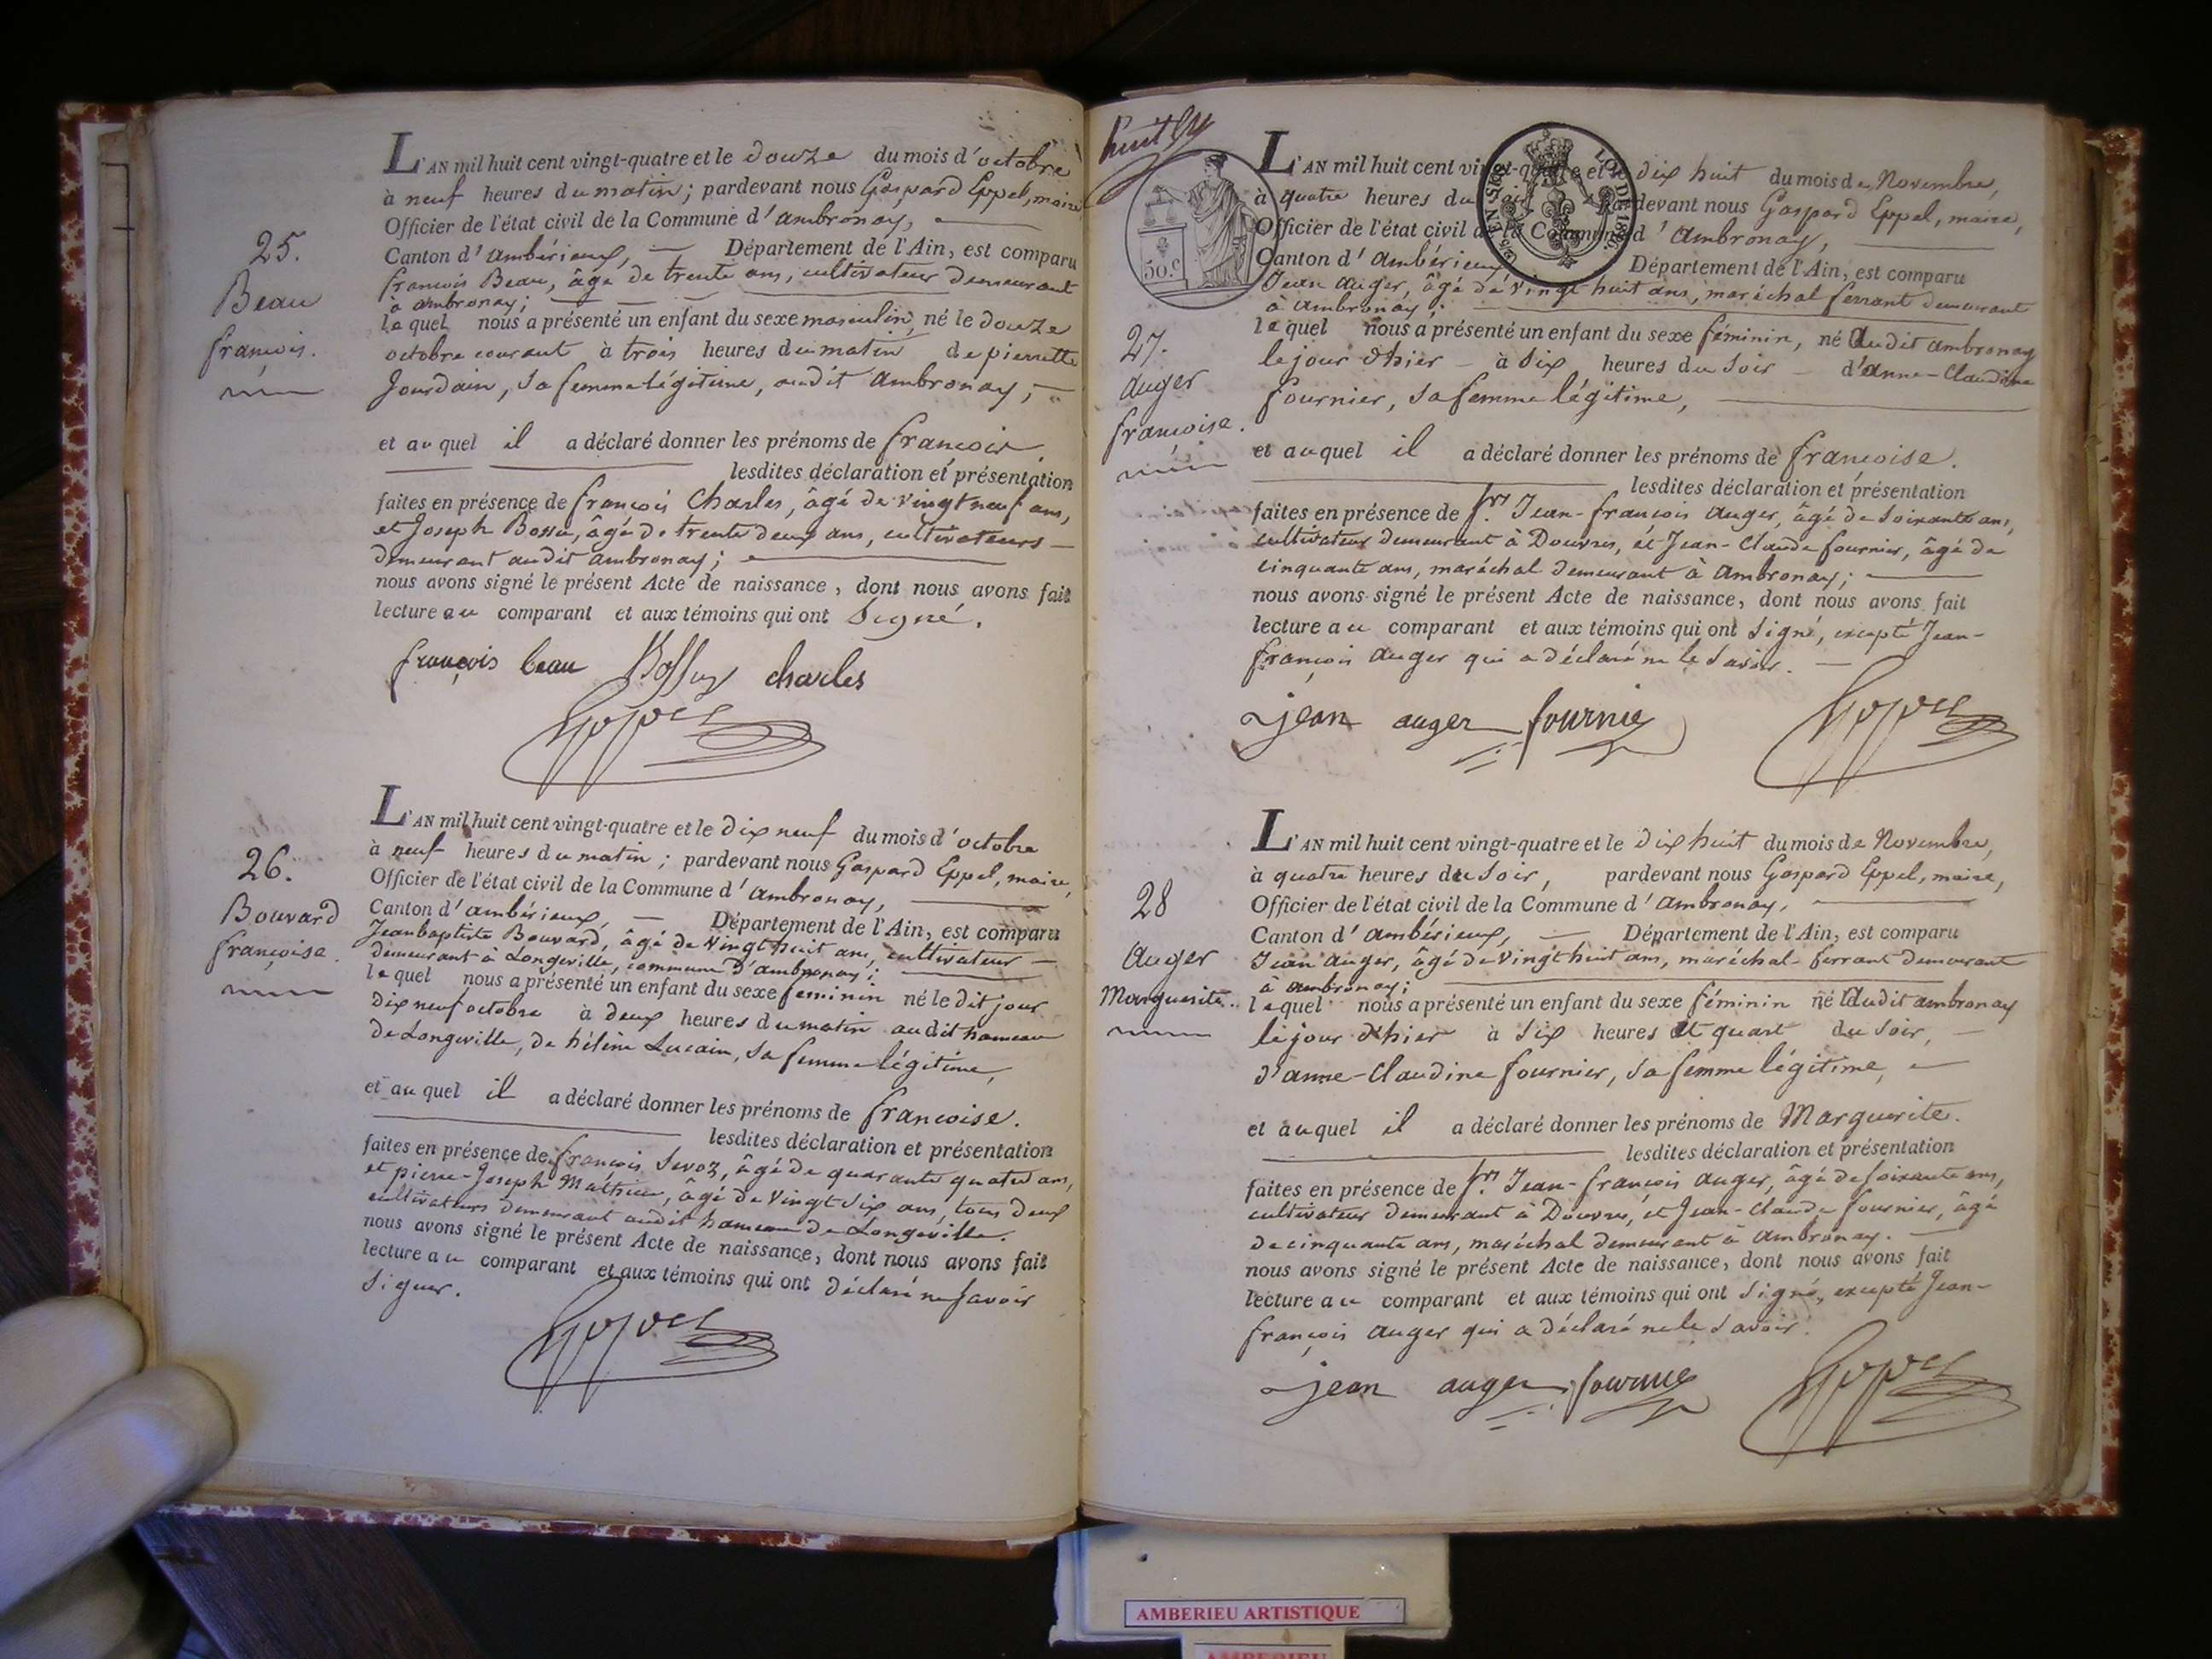 25.
Beau
françois.
L'AN mil huit cent vingt-quatre et le douze du mois d'octobre
à neuf heures du matin; pardevant nous Gaspard Eppel, maire
Officier de l'état civil de la Commune d'ambronay,
Canton d'ambérieux, — Département de l'Ain, est comparu
françois Beau, âgé de trente ans, cultivateur demeurant
à ambronay;
lequel nous a présenté un enfant du sexe masculin, né le douze
octobre courant à trois heures du matin de pierrette
Jourdain, sa femme légitime, audit ambronay, —
et auquel il a déclaré donner les prénoms de françois
lesdites déclaration et présentation
faites en présence de françois Charles, âgé de vingt neuf ans,
et Joseph Bossu, âgé de trente deux ans, cultivateurs —
demeurant audit ambronay;
nous avons signé le présent Acte de naissance, dont nous avons fait
lecture au comparant et aux témoins qui ont signé.
françois beau Bossuy charles
Eppel
26.
Bouvard
françoise.
L'AN mil huit cent vingt-quatre et le dix neuf du mois d'octobre
à neuf heures du matin; pardevant nous Gaspard Eppel, maire,
Officier de l'état civil de la Commune d'ambronay,
Canton d'ambérieux, — Département de l'Ain, est comparu
Jeanbaptiste Bouvard, âgé de vingt huit ans, cultivateur —
demeurant à Longeville, commune d'ambronay;
lequel nous a présenté un enfant du sexe feminin né le dit jour
dix neuf octobre à deux heures du matin audit hameau
de Longeville, de hélène Lucain, sa femme légitime,
et auquel il a déclaré donner les prénoms de françoise.
lesdites déclaration et présentation
faites en présence de françois Sevoz, âgé de quarante quatre ans,
et pierre-Joseph Mathieu, âgé de vingt six ans, tous deux
cultivateurs demeurant audit hameau de Longeville.
nous avons signé le présent Acte de naissance, dont nous avons fait
lecture au comparant et aux témoins qui ont déclaré ne savoir
signer.
Eppel
huit
50.c
LOI DE 1816
27.
auger
françoise.
L'AN mil huit cent vingt-quatre et le dix huit du mois de Novembre,
à quatre heures du soir pardevant nous Gaspard Eppel, maire,
Officier de l'état civil de la Commune d'ambronay,
Canton d'ambérieux, Département de l'Ain, est comparu
Jean auger, âgé de vingt huit ans, maréchal ferrant demeurant
à ambronay;
lequel nous a présenté un enfant du sexe féminin, né audit ambronay
le jour d'hier — à six heures du soir — d'anne-Claudine
fournier, sa femme légitime,
et auquel il a déclaré donner les prénoms de françoise.
lesdites déclaration et présentation
faites en présence de Srs Jean-françois auger, âgé de soixante ans,
cultivateur demeurant à Douvres, et Jean-Claude fournier, âgé de
cinquante ans, maréchal demeurant à ambronay;
nous avons signé le présent Acte de naissance, dont nous avons fait
lecture au comparant et aux témoins qui ont signé, excepté Jean-
françois auger qui a déclaré ne le savoir. —
jean auger fournie Eppel
28
auger
Marguerite.
L'AN mil huit cent vingt-quatre et le dix huit du mois de Novembre,
à quatre heures du soir, pardevant nous Gaspard Eppel, maire,
Officier de l'état civil de la Commune d'ambronay,
Canton d'ambérieux, — Département de l'Ain, est comparu
Jean auger, âgé de vingt huit ans, maréchal-ferrant demeurant
à ambronay;
lequel nous a présenté un enfant du sexe féminin né audit ambronay
le jour d'hier à six heures et quart du soir, —
d'anne-Claudine fournier, sa femme légitime, —
et auquel il a déclaré donner les prénoms de Marguerite.
lesdites déclaration et présentation
faites en présence de Srs Jean-françois auger, âgé de soixante ans,
cultivateur demeurant à Douvres, et Jean-claude fournier, âgé
de cinquante ans, maréchal demeurant à ambronay. —
nous avons signé le présent Acte de naissance, dont nous avons fait
lecture au comparant et aux témoins qui ont signé, excepté Jean-
françois auger qui a déclaré ne le savoir.
jean auger fournie Eppel
AMBERIEU ARTISTIQUE
AMBERIEU